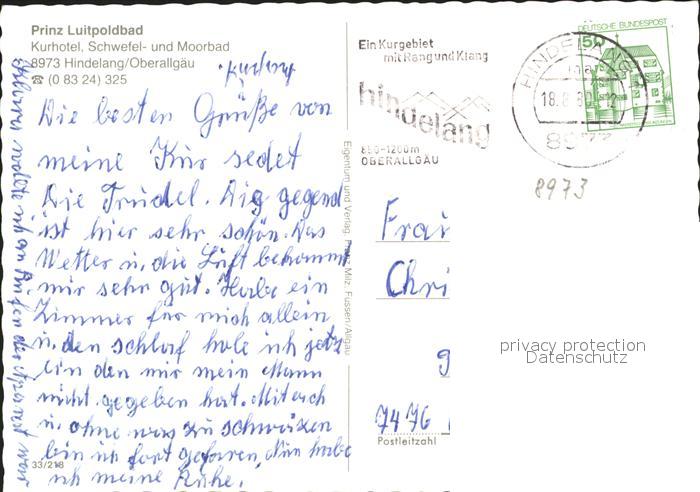 Prinz Luitpoldbad
Kurhotel, Schwefel- und Moorbad
8973 Hindelang/Oberallgäu
☎ (0 83 24) 325
Die besten Grüße von
meine Kur sedet
Die Trudel. Dig gegend
ist hier sehr schön. Das
Wetter u. die Luft bekommt
mir sehr gut. Habe ein
Zimmer für mich allein
u. den schlaf hole ich jetz
ein den mir mein Mann
nicht gegeben hat. Mit ach
u. ohne was zu
bin ich fort gefaren, Nun habe
ich meine Ruhe.
33/218
Eigentum und Verlag: Franz Milz, Füssen/Allgäu
Ein Kurgebiet
mit Rang und Klang
hindelang
850-1200m
OBERALLGÄU
HINDELANG
18.8.80-12
8973
DEUTSCHE BUNDESPOST
50
8973
Frau
Chri
9
7476
Postleitzahl
privacy protection
Datenschutz